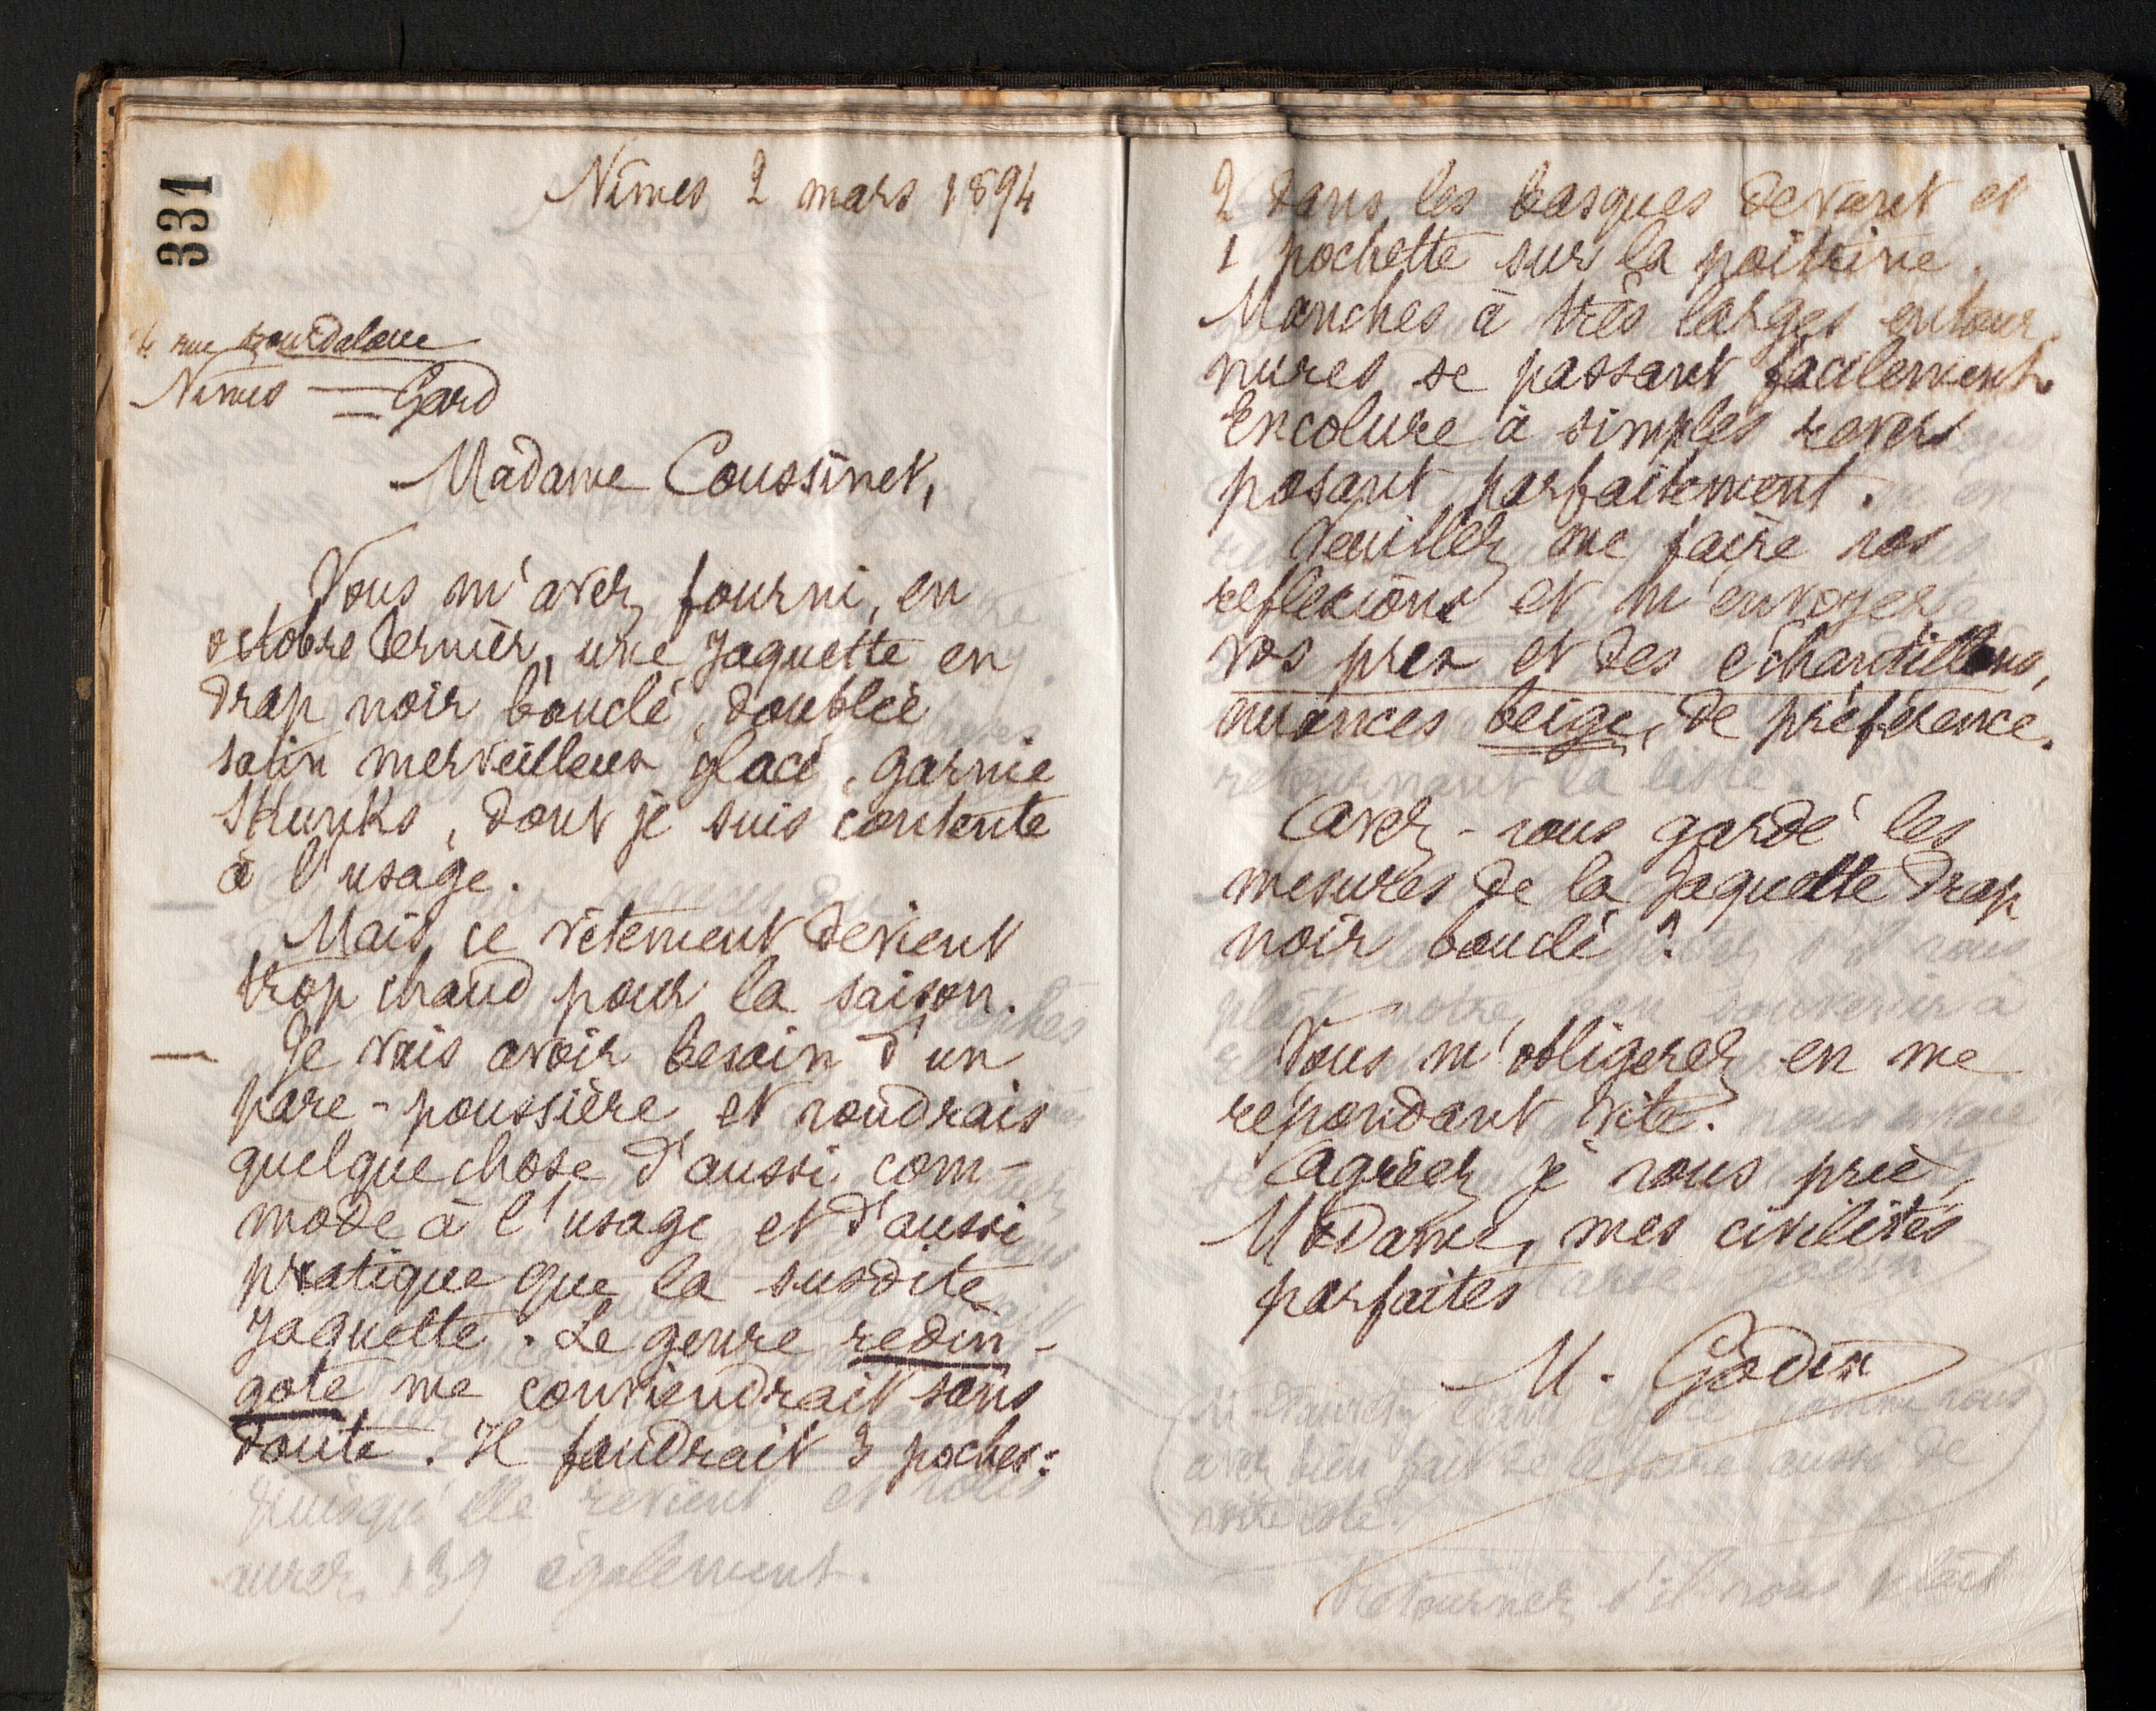 331
Nimes 2 mars 1894
4 rue Bourdaloue
Nimes — Gard
Madame Coussinet,
Vous m'avez fourni, en
octobre dernier, une Jaquette en
drap noir bouclé, doublée
satin merveilleux glacé, garnie
Skunks, dont je suis contente
à l'usage.
Mais ce vêtement devient
trop chaud pour la saison.
— Je vais avoir besoin d'un
pare-poussière et voudrais
quelque chose d'aussi com-
mode à l'usage et d'aussi
pratique que la susdite
Jaquette. Le genre redin-
gote me conviendrait sans
doute. Il faudrait 3 poches:
2 dans les basques devant et
1 pochette sur la poitrine.
Manches à très larges entour-
nures se passant facilement.
Encolure à simples revers
posant parfaitement.
Veuillez me faire vos
reflexions et m'envoyer
vos prix et des échantillons,
nuances beige, de préférence.
Avez-vous gardé les
mesures de la Jaquette drap
noir bouclé?
Vous m'obligerez en me
répondant vite.
Agréez je vous prie,
Madame, mes civilités
parfaites
M. Godin